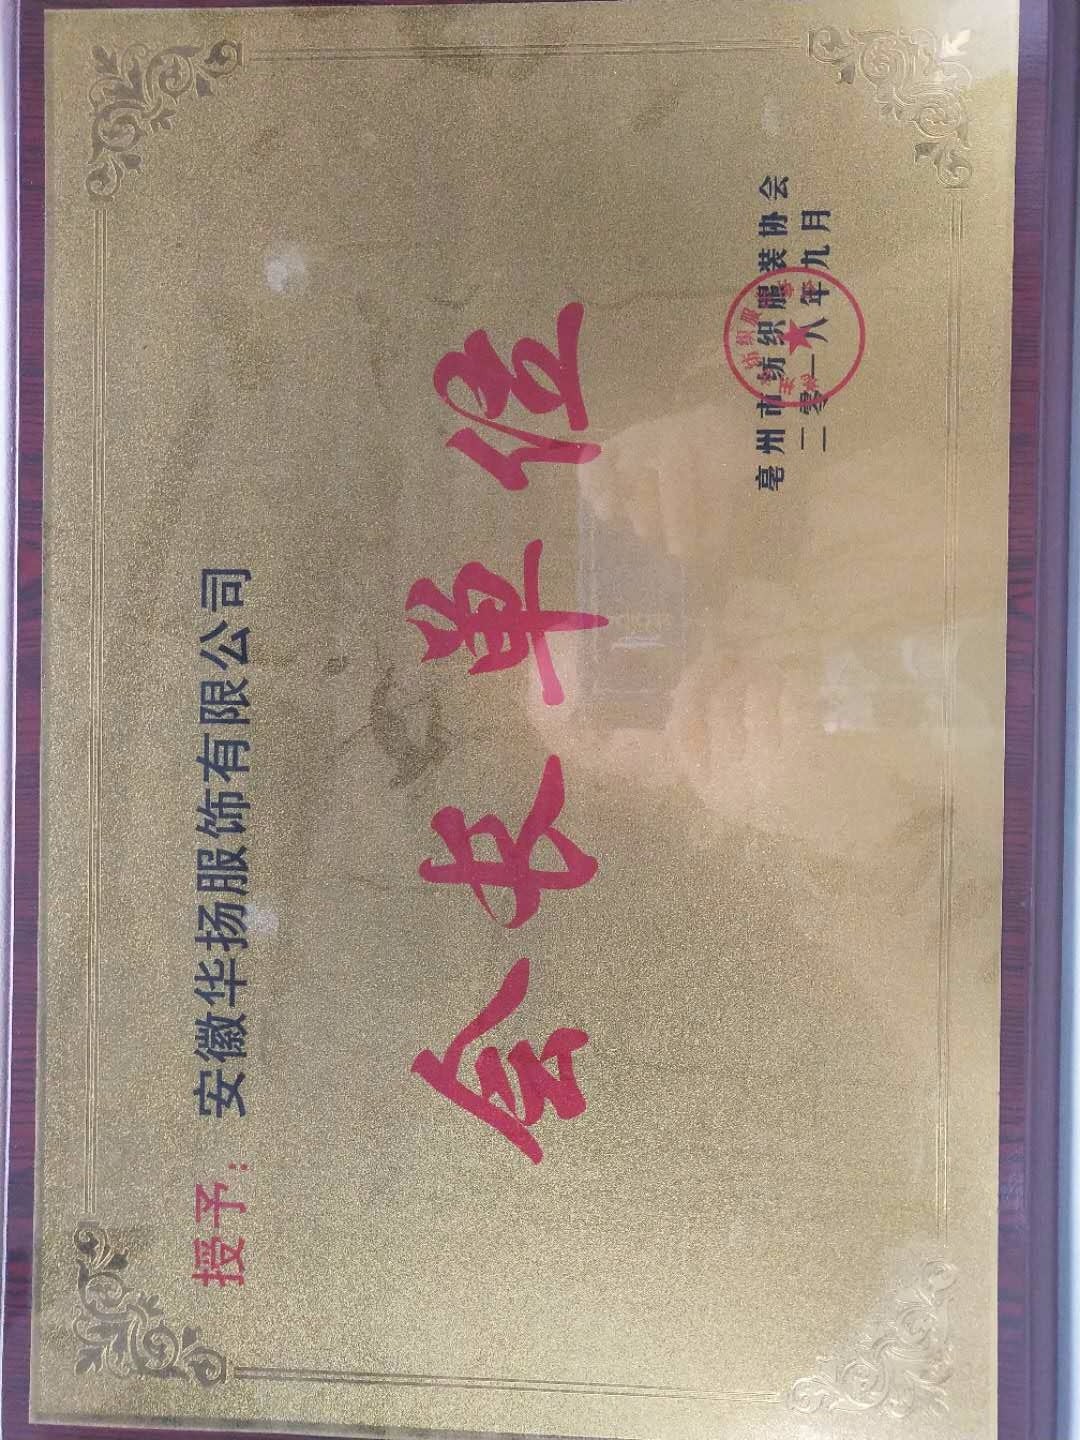 授予：安徽华扬服饰有限公司
会长单位
亳州市纺织服装协会
二零一八年九月